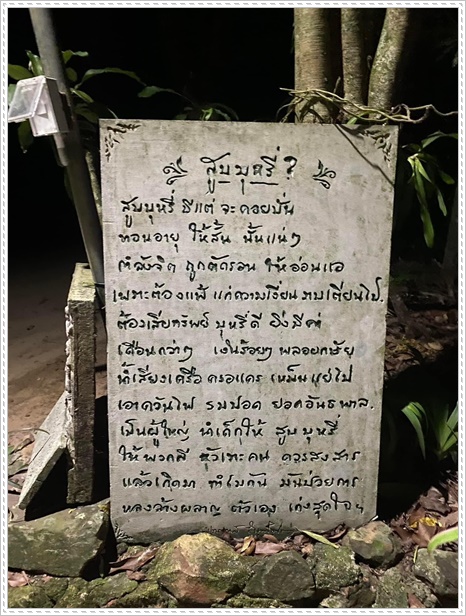 สูบบุหรี่ ?
สูบบุหรี่ มีแต่ จะคอยบั่น
ทอนอายุ ให้สั้น นั้นแน่ๆ
กำลังจิต ถูกตัดรอน ให้อ่อนแอ
เพราะต้องแพ้ แก่ความเงี่ยน
ต้องเสียทรัพย์ บุหรี่ดี ยิ่งมีค่า
เดือนกว่าๆ เงินร้อยๆ พลอยกษัย
ทั้งเสียงเครือ ครอแคร เหม็นแย่ไป
เอาควันไฟ รมปอด ยอดอันธพาล.
เป็นผู้ใหญ่ นำเด็กให้ สูบบุหรี่
ให้พวกผี หัวเราะคน ควรสงสาร
แล้วเกิดมา ทำไมกัน มันป่วยการ
หลงล้างผลาญ ตัวเอง เก่งสุดใจฯ